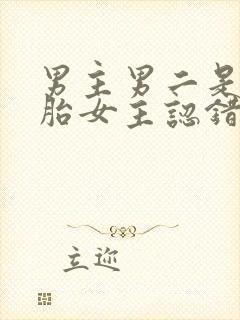 男主男二是
胎女主認錯
立迩